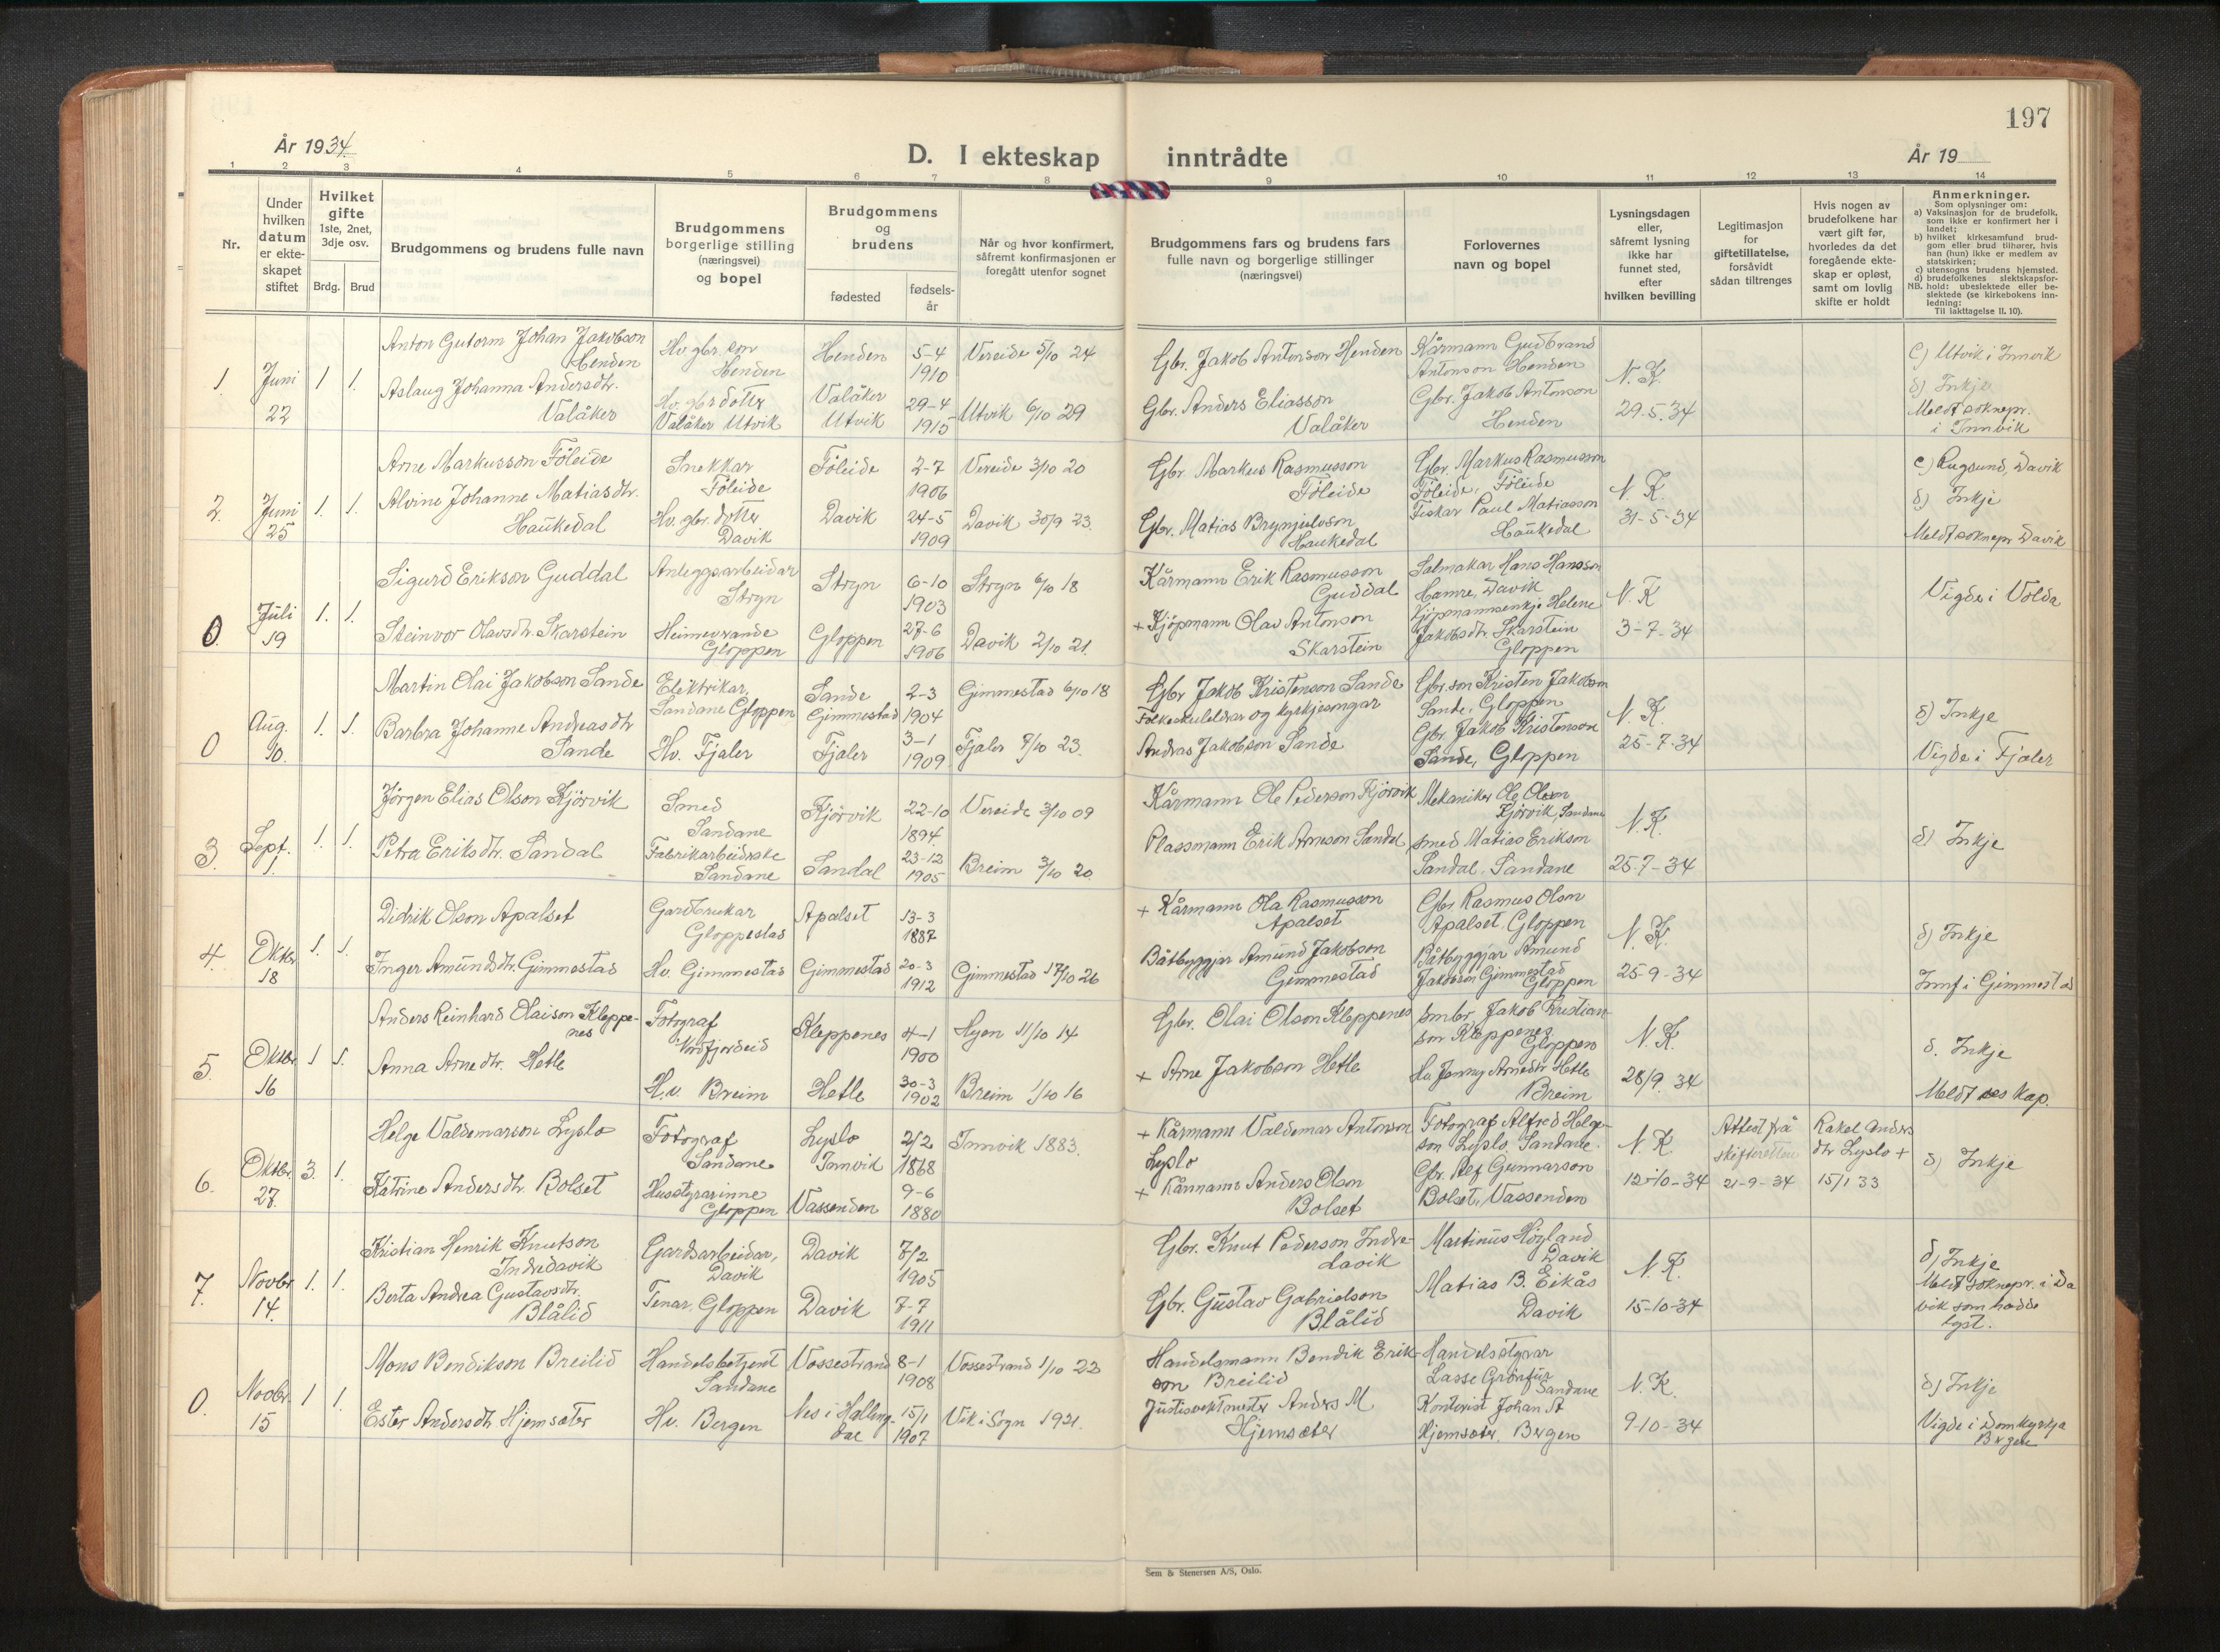 197
År 1934
D. I ekteskap inntrådte
År 19
1 2 3 4 5 6 7 8 9 10 11 12 13 14
Nr.
Under hvilken datum er ekteskapet stiftet
Hvilket gifte
1ste, 2net, 3dje osv.
Brdg. Brud
Brudgommens og brudens fulle navn
Brudgommens borgerlige stilling (næringsvei) og bopel
Brudgommens og brudens
fødested
fødsels-år
Når og hvor konfirmert, såfremt konfirmasjonen er foregått utenfor sognet
Brudgommens fars og brudens fars fulle navn og borgerlige stillinger (næringsvei)
Forlovernes navn og bopel
Lysningsdagen eller, såfremt lysning ikke har funnet sted, efter hvilken bevilling
Legitimasjon for giftetillatelse, forsåvidt sådan tiltrenges
Hvis nogen av brudefolkene har vært gift før, hvorledes da det foregående ekteskap er opløst, samt om lovlig skifte er holdt
Anmerkninger.
Som oplysninger om:
a) Vaksinasjon for de brudefolk, som ikke er konfirmert her i landet;
b) hvilket kirkesamfund brudgom eller brud tilhører, hvis han (hun) ikke er medlem av statskirken;
c) utensogns brudens hjemsted.
d) brudefolkenes slektskapsforhold: ubeslektede eller beslektede (se kirkebokens innledning:
NB.
Til iakttagelse II. 10).
1. Juni 22 1 1.
Anton Gutorm Johan Jakobson Henden
Hv. gbr. son Henden
Henden
5-4 1910
Vereide 5/10 24
Gbr. Jakob Antonson Henden
Kårmann Gudbrand Antonson Henden
N. K. 29-5-34
C) Utvik i Innvik
Aslaug Johanna Andersdtr. Valåker
Hv. gbr dotter Valåker Utvik
Valåker Utvik
29-4 1915
Utvik 6/10 29
Gbr. Anders Eliasson Valåker
Gbr. Jakob Antonson Henden
d) Inkje
Meldt soknepr. i Innvik
2. Juni 25 1. 1.
Arne Markusson Föleide
Snekkar Föleide
Föleide
2-7 1906
Vereide 3/10 20
Gbr. Markus Rasmusson Föleide
Gbr. Markus Rasmusson Föleide, Föleide
N. K. 31-5-34
c) Rugsund, Davik
Alvine Johanne Matiasdtr. Haukedal
Hv. gbr. dotter Davik
Davik
24-5 1909
Davik 30/9 23.
Gbr. Matias Brynjulvson Haukedal
Fiskar Paul Matiasson Haukedal
d) Inkje
Meldt soknepr Davik
0. Juli 19 1. 1.
Sigurd Erikson Guddal
Anleggsarbeidar Stryn
Stryn
6-10 1903
Stryn 6/10 18
Kårmann Erik Rasmusson Guddal
Salmakar Hans Hansson Hamre, Davik
N. K 3-7-34
Vigde i Volda
Steinvor Olavsdtr. Skarstein
Heimeverande Gloppen
Gloppen
27-6 1906
Davik 2/10 21.
+ Kjöpmann Olav Antonson Skarstein
Kjöpmannsenkje Helene Jakobsdtr. Skarstein Gloppen
0 Aug. 10. 1. 1.
Martin Olai Jakobson Sande
Elektrikar, Sandane Gloppen
Sande Gimmestad
2-3 1904
Gimmestad 6/10 18
Gbr Jakob Kristenson Sande
Gbr. son Kristen Jakobson Sande, Gloppen
N. K. 25-7-34
d) Inkje
Barbra Johanne Andreasdtr Sande
Hv. Fjaler
Fjaler
3-1 1909
Fjaler 7/10 23.
Folkeskulelærar og kyrkjesongar Andras Jakobson Sande
Gbr. Jakob Kristenson Sande, Gloppen
Vigde i Fjaler
3. Sept. 1. 1. 1.
Jörgen Elias Olson Kjörvik
Smed Sandane
Kjörvik
22-10 1894.
Vereide 3/10 09
Kårmann Ole Pederson Kjörvik
Mekaniker Ole Olson Kjörvik, Sandane
N. K. 25-7-34
d) Inkje
Petra Eriksdtr. Sandal
Fabrikarbeidrske Sandane
Sandal
23-12 1905
Breim 3/10 20
Plassmann Erik Arneson Sandal
smed Matias Erikson Sandal, Sandane
4. Oktbr 18 1. 1.
Didrik Olson Apalset
Gardbrukar Gloppestad
Apalset
13-3 1887
+ Kårmann Ola Rasmusson Apalset
Gbr Rasmus Olson Apalset, Gloppen
N. K. 25-9-34
d) Inkje
Inger Amundsdtr. Gimmestad
Hv. Gimmestad
Gimmestad
20-3 1912
Gimmestad 17/10 26
Båtbyggjar Amund Jakobson Gimmestad
Båtbyggjar Amund Jakobson Gimmestad Gloppen
Innf i Gimmestad
5. Oktbr. 16 1 1.
Anders Reinhard Olaison Kleppenes
Fotograf Nordfjordeid
Kleppenes
4-1 1900
Hyen 11/10 14
Gbr. Olai Olson Kleppenes
Smbr. Jakob Kristianson Kleppenes Gloppen
N. K. 28/9. 34
d. Inkje
Anna Arnedtr. Hetle
H.v. Breim
Hetle
30-3 1902
Breim 1/10 16
+ Arne Jakobson Hetle
Hv Jenny Arnedtr Hetle Breim
Meldt res kap.
6. Oktbr. 27. 3. 1.
Helge Valdemarson Lyslo
Fotograf Sandane
Lyslo Innvik
2/2 1868
Innvik 1883.
+ Kårmann Valdemar Antonson Lyslo
Fotograf Alfred Helgeson Lyslo, Sandane.
N. K. 12-10-34
Attest frå skifteretten 21-9-34
Rakel Andersdtr Lyslo + 15/1 33
d) Inkje
Katrine Andersdtr. Bolset
Husstyrarinne Gloppen
Vassenden
9-6 1880
+ Kårmann Anders Olson Bolset
Gbr. Alf Gunnarson Bolset, Vassenden
7. Novbr 14. 1. 1.
Kristian Henrik Knutson Indredavik
Gardsarbeidar, Davik
Davik
7/2 1905
Gbr. Knut Pederson Indredavik
Martinus Högland Davik
N. K. 15-10-34
d) Inkje
Berta Andrea Gustavsdtr. Blålid
Tenar, Gloppen
Davik
7-7 1911
Gbr. Gustav Gabrielson Blålid
Matias B. Eikås Davik
Meldt soknepr. i Davik som hadde lyst.
0. Novbr. 15 1 1.
Mons Bendikson Breilid
Handelsbetjent Sandane
Vossestrand
8-1 1908
Vossestrand 1/10 22
Handelsmann Bendik Erikson Breilid
Handelsstyrar Lasse Grönfur Sandane
N. K. 9-10-34
d) Inkje
Ester Andersdtr Hjemsæter
Hv. Bergen
Nes i Hallingdal
15/1 1907
Vik i Sogn 1921.
Justisvektmeister Anders M Hjemsæter
Kontorist Johan St Hjemsæter, Bergen
Vigde i Domkyrkja Bergen
Sem & Stenersen A/S, Oslo.